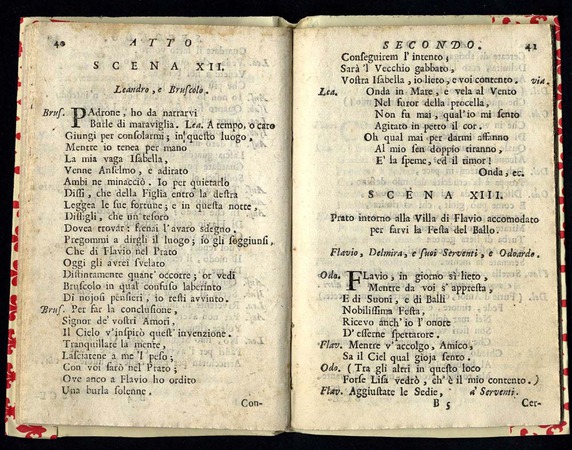 40
ATTO
SCENA XII.
Leandro, e Bruscolo.
Brus. PAdrone, ho da narrarvi
Baile di maraviglia. Lea. A tempo, o caro
Giungi per consolarmi; in questo luogo,
Mentre io tenea per mano
La mia vaga Isabella,
Venne Anselmo, e adirato
Ambi ne minacciò. Io per quietarlo
Dissi, che della Figlia entro la destra
Leggea le sue fortune; e in questa notte,
Dissigli, che un tesoro
Dovea trovar: frenai l'avaro sdegno.
Pregommi a dirgli il luogo; io gli soggiunsi,
Che di Flavio nel Prato
Oggi gli avrei svelato
Distintamente quant' occorre; or vedi
Bruscolo in qual confuso laberinto
Di nojosi pensieri, io resti avvinto.
Brus. Per far la conclusione,
Signor de' vostri Amori,
Il Cielo v'inspirò quest' invenzione.
Tranquillate la mente,
Lasciatene a me 'l peso;
Con voi sarò nel Prato;
Ove anco a Flavio ho ordito
Una burla solenne.
Con-
SECONDO.
41
Conseguirem l'intento;
Sarà 'l Vecchio gabbato,
Vostra Isabella, io lieto, e voi contento. via.
Lea. Onda in Mare, e vela al Vento
Nel furor della procella,
Non fu mai, qual'io mi sento
Agitato in petto il cor.
Oh qual mai per darmi affanno
Al mio sen doppio tiranno,
E' la speme, ed il timor!
Onda, ec.
SCENA XIII.
Prato intorno alla Villa di Flavio accomodato
per farvi la Festa del Ballo.
Flavio, Delmira, e suoi Serventi, e Odoardo.
Odo. FLavio, in giorno sì lieto,
Mentre da voi s'appresta,
E di Suoni, e di Balli
Nobilissima Festa,
Ricevo anch' io l' onore
D' esserne spettatore.
Flav. Mentre v'accolgo, Amico,
Sa il Ciel qual gioja sento.
Odo. (Tra gli altri in questo loco
Forse Lisa vedrò, ch' è il mio contento.)
Flav. Aggiustate le Sedie, a' Serventi.
B 5
Cer-